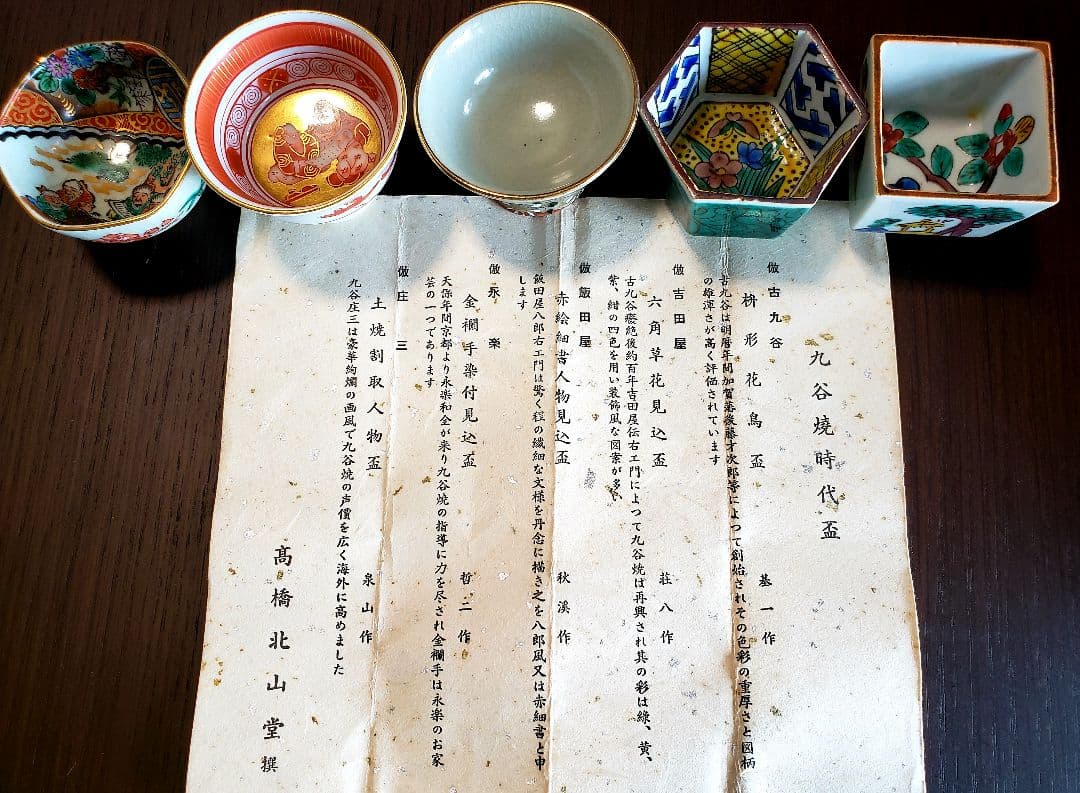 九谷燒時代盃
倣古九谷
桝形花鳥盃 基一作
古九谷は明暦年間加賀藩後藤才次郎等によつて創始されその色彩の重厚さと図柄
の雄渾さが高く評価されています
倣吉田屋
六角草花見込盃 荘八作
古九谷癈絶後約百年吉田屋伝右エ門によつて九谷焼は再興され其の彩は緑、黄、
紫、紺の四色を用い装飾風な図案が多い
倣飯田屋
赤絵細書人物見込盃 秋溪作
飯田屋八郎右エ門は驚く程の繊細な文様を丹念に描き之を八郎風又は赤細書と申
します
倣永楽
金襴手染付見込盃 哲二作
天保年間京都より永楽和全が来り九谷焼の指導に力を尽され金襴手は永楽のお家
芸の一つであります
倣庄三
土焼割取人物盃 泉山作
九谷庄三は豪華絢爛の画風で九谷焼の声價を広く海外に高めました
髙橋北山堂撰